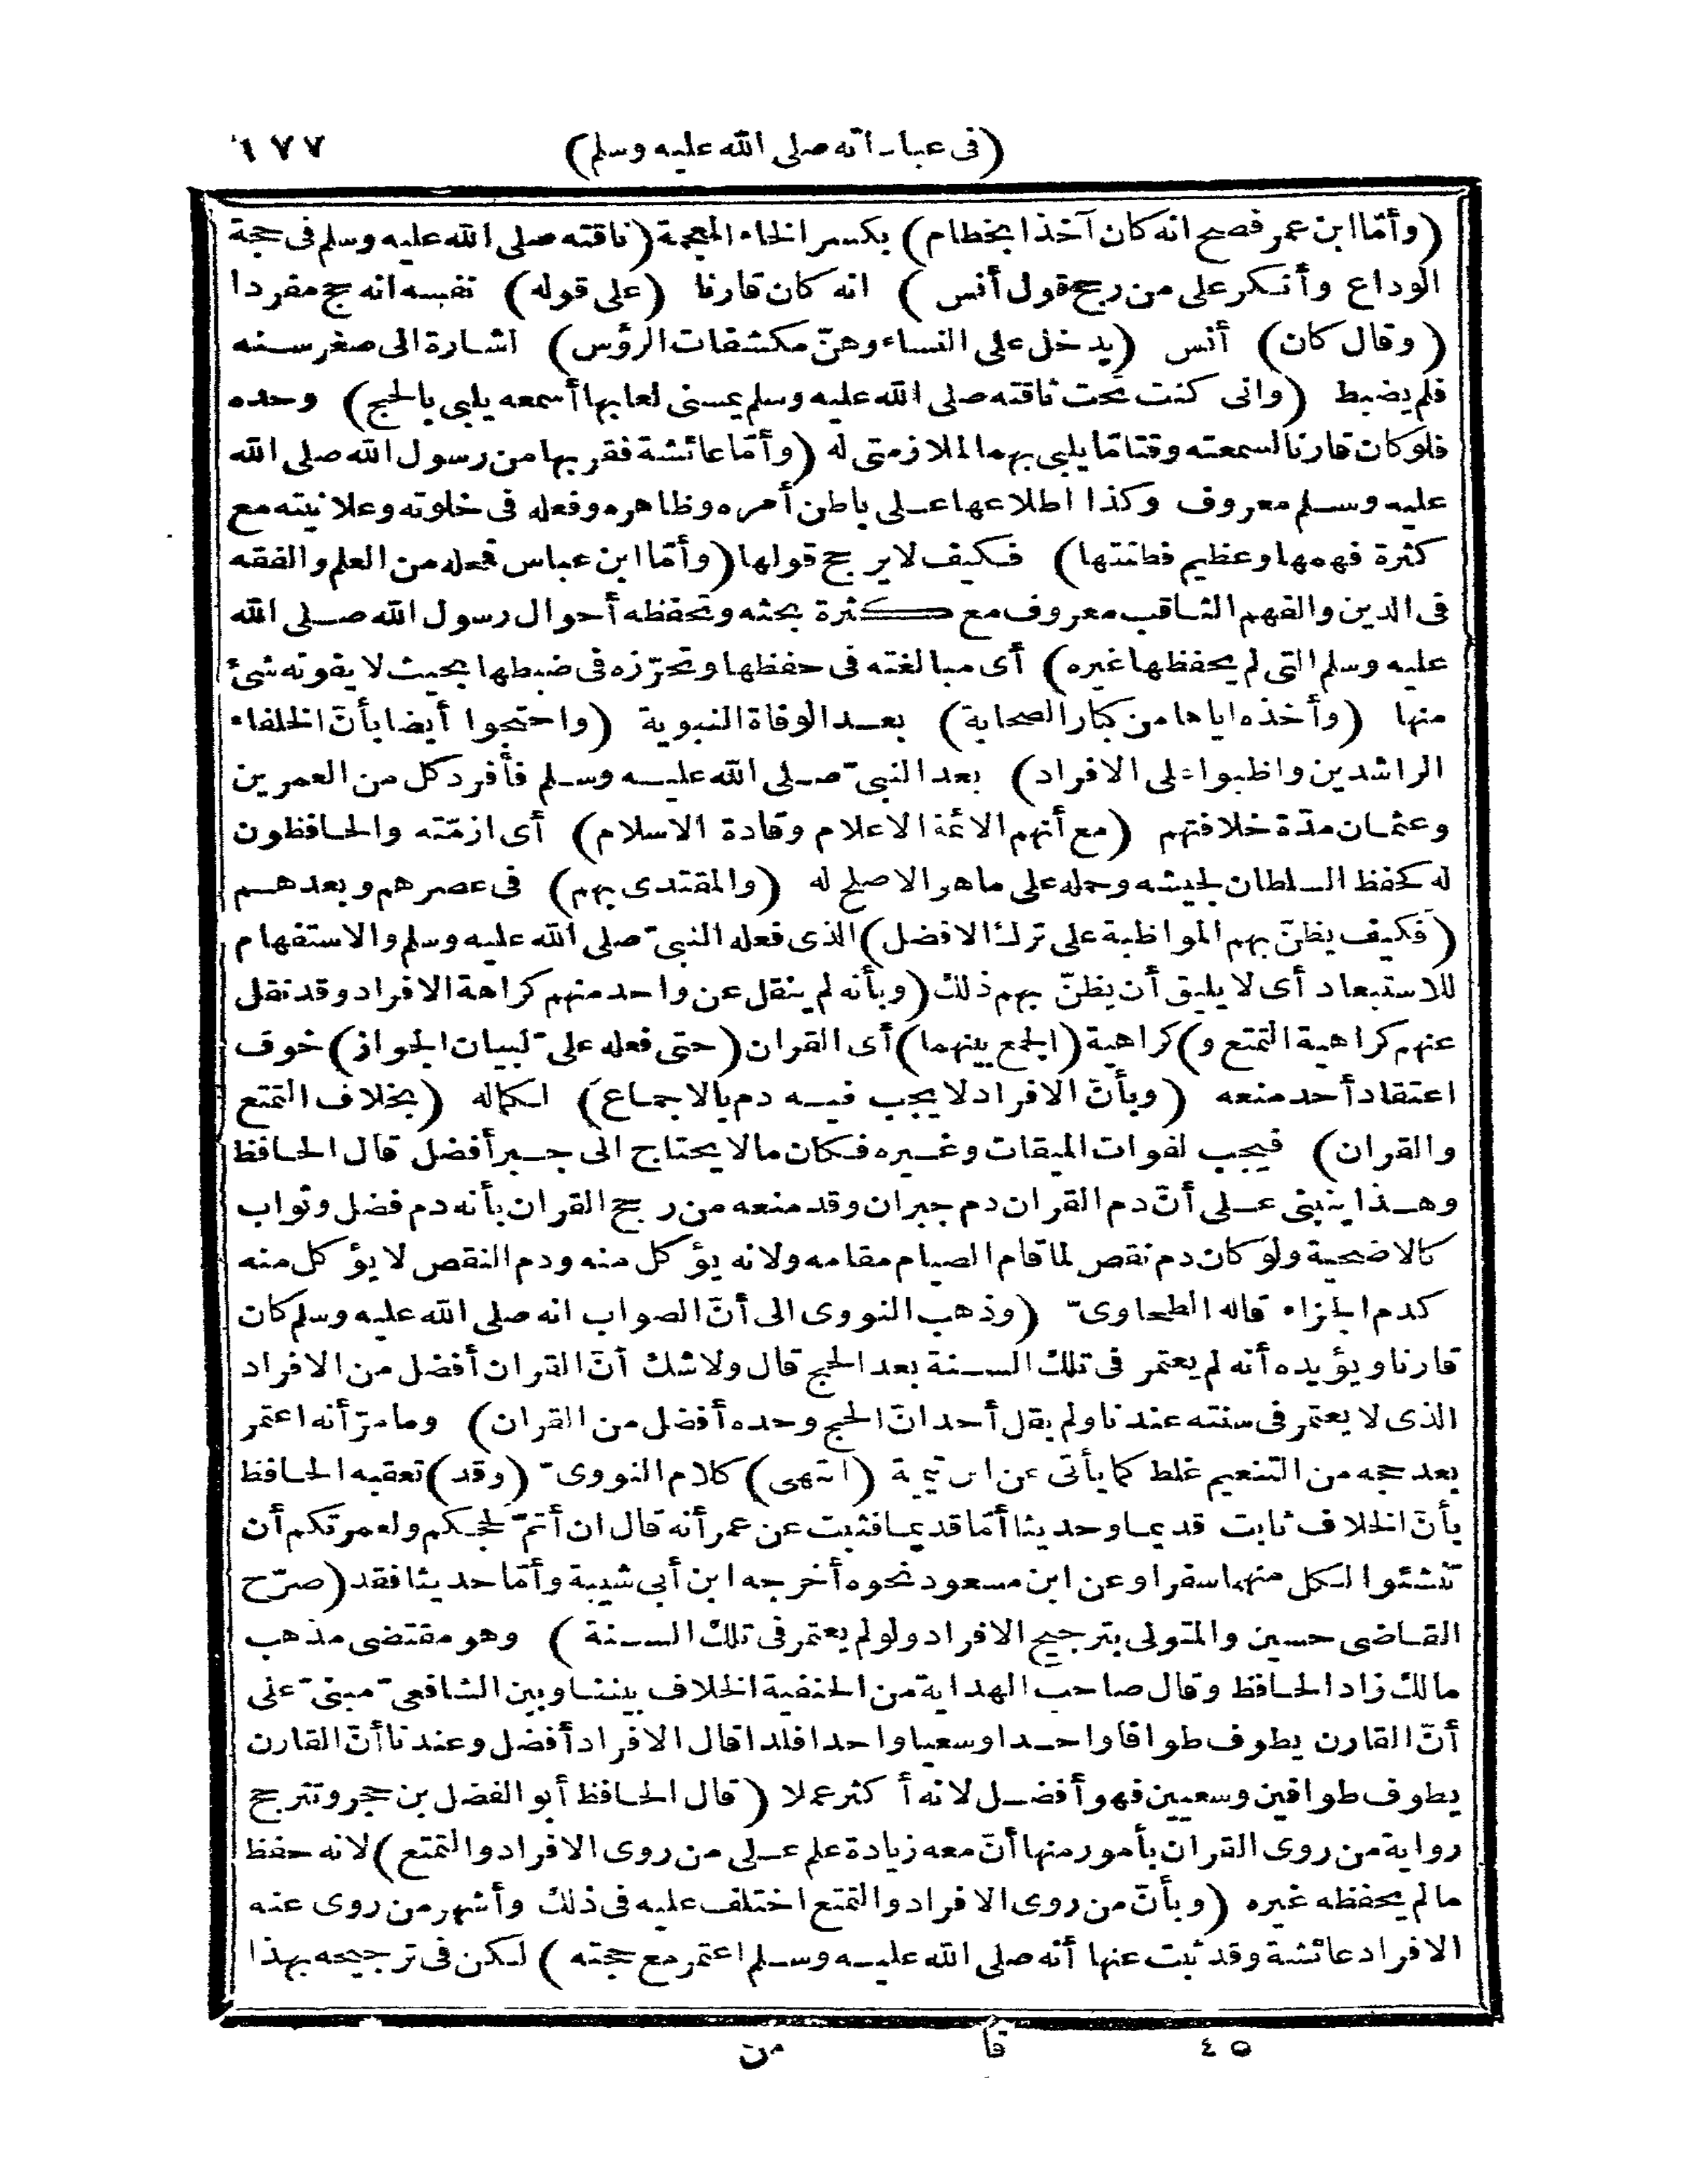 (فى عباداته صلى الله عليه وسلم) ٦٧٧
(وأمّا ابن عمر فصح انه كان آخذا بخطام) بكسر الخاء المعجمة (ناقته صلى الله عليه وسلم فى حجة
الوداع وأنكر على من رجح قول أنس) انه كان قارنا (على قوله) نفسه انه حج مفردا
(وقال كان) أنس (يدخل على النساء وهنّ مكشفات الرؤس) اشارة الى صغر سنه
فلم يضبط (وانى كنت تحت ناقته صلى الله عليه وسلم يمسنى لعابها أسمعه يلبى بالحج) وحده
فلو كان قارنا لسمعته وقتا مّا يلبى بهما لملازمتى له (وأمّا عائشة فقربها من رسول الله صلى الله
عليه وسلم معروف وكذا اطلاعها على باطن أمره وظاهره وفعله فى خلوته وعلانيته مع
كثرة فهمها وعظيم فطنتها) فكيف لا يرجح قولها (وأمّا ابن عباس فمحله من العلم والفقه
فى الدين والفهم الثاقب معروف مع كثرة بحثه وتحفظه أحوال رسول الله صلى الله
عليه وسلم التى لم يحفظها غيره) أى مبالغته فى حفظها وتحرّزه فى ضبطها بحيث لا يفوته شئ
منها (وأخذه اياها من كبار الصحابة) بعد الوفاة النبوية (واحتجوا أيضا بأنّ الخلفاء
الراشدين واظبوا على الافراد) بعد النبىّ صلى الله عليه وسلم فأفرد كل من العمرين
وعثمان مدّة خلافتهم (مع أنهم الائمة الاعلام وقادة الاسلام) أى ازمّته والحافظون
له كحفظ السلطان لجيشه وحمله على ما هو الاصلح له (والمقتدى بهم) فى عصرهم وبعدهم
(فكيف يظنّ بهم المواظبة على ترك الافضل) الذى فعله النبىّ صلى الله عليه وسلم والاستفهام
للاستبعاد أى لا يليق أن يظنّ بهم ذلك (وبأنه لم ينقل عن واحد منهم كراهة الافراد وقد نقل
عنهم كراهية التمتع و) كراهية (الجمع بينهما) أى القران (حتى فعله علىّ لبيان الجواز) خوف
اعتقاد أحد منعه (وبأنّ الافراد لا يجب فيه دم بالاجماع) لكماله (بخلاف التمتع
والقران) فيجب لفوات الميقات وغيره فكان ما لا يحتاج الى جبر أفضل قال الحافظ
وهذا ينبنى على أنّ دم القران دم جبران وقد منعه من رجح القران بأنه دم فضل وثواب
كالاضحية ولو كان دم نقص لما قام الصيام مقامه ولانه يؤكل منه ودم النقص لا يؤكل منه
كدم الجزاء قاله الطحاوىّ (وذهب النووى الى أنّ الصواب انه صلى الله عليه وسلم كان
قارنا ويؤيده أنه لم يعتمر فى تلك السنة بعد الحج قال ولا شك أنّ القران أفضل من الافراد
الذى لا يعتمر فى سنته عندنا ولم يقل أحد انّ الحج وحده أفضل من القران) وما مرّ أنه اعتمر
بعد حجه من التنعيم غلط كما يأتى عن ابن تيمية (انتهى) كلام النووىّ (وقد) تعقبه الحافظ
بأنّ الخلاف ثابت قديما وحديثا أمّا قديما فثبت عن عمر أنه قال ان أتمّ لحجكم ولعمرتكم أن
تنشئوا لكل منهما سفرا وعن ابن مسعود نحوه أخرجه ابن أبى شيبة وأمّا حديثا فقد (صرّح
القاضى حسين والمتولى بترجيح الافراد ولو لم يعتمر فى تلك السنة) وهو مقتضى مذهب
مالك زاد الحافظ وقال صاحب الهداية من الحنفية الخلاف بيننا وبين الشافعىّ مبنىّ على
أنّ القارن يطوف طوافا واحدا وسعيا واحدا فلذا قال الافراد أفضل وعندنا أنّ القارن
يطوف طوافين وسعيين فهو أفضل لانه أكثر عملا (قال الحافظ أبو الفضل بن حجر وتترجح
رواية من روى القران بأمور منها أنّ معه زيادة علم على من روى الافراد والتمتع) لانه حفظ
ما لم يحفظه غيره (وبأنّ من روى الافراد والتمتع اختلف عليه فى ذلك وأشهر من روى عنه
الافراد عائشة وقد ثبت عنها أنه صلى الله عليه وسلم اعتمر مع حجته) لكن فى ترجيحه بهذا
٤٥ قا من